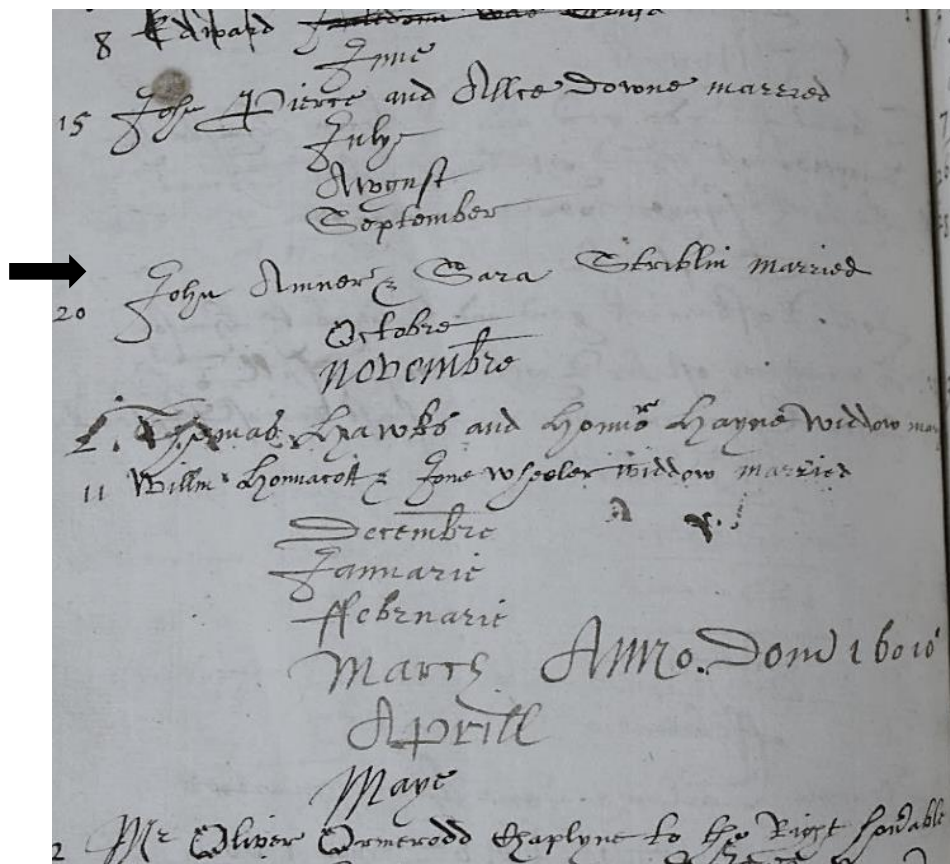 8 Edward
June
15 John Pierce and Allce Downe married
July
August
September
20 John Amner & Sara Striblin married
Octobre
Novembre
2. Thomas Hawks and Hayne widdow
11 Willm Honnacott & Jone Wheeler widdow married
Decembre
Januarie
ffebruarie
March Anno. Domi
Aprill
Maye
2 Mr Oliver Ormerodd Chaplyne to the Right